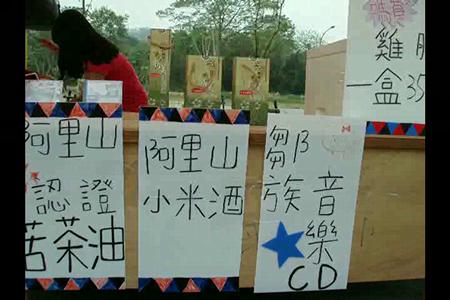 阿里山
認證
苦茶油
阿里山
小米酒
鄒
族音
樂
CD
雞
一盒35